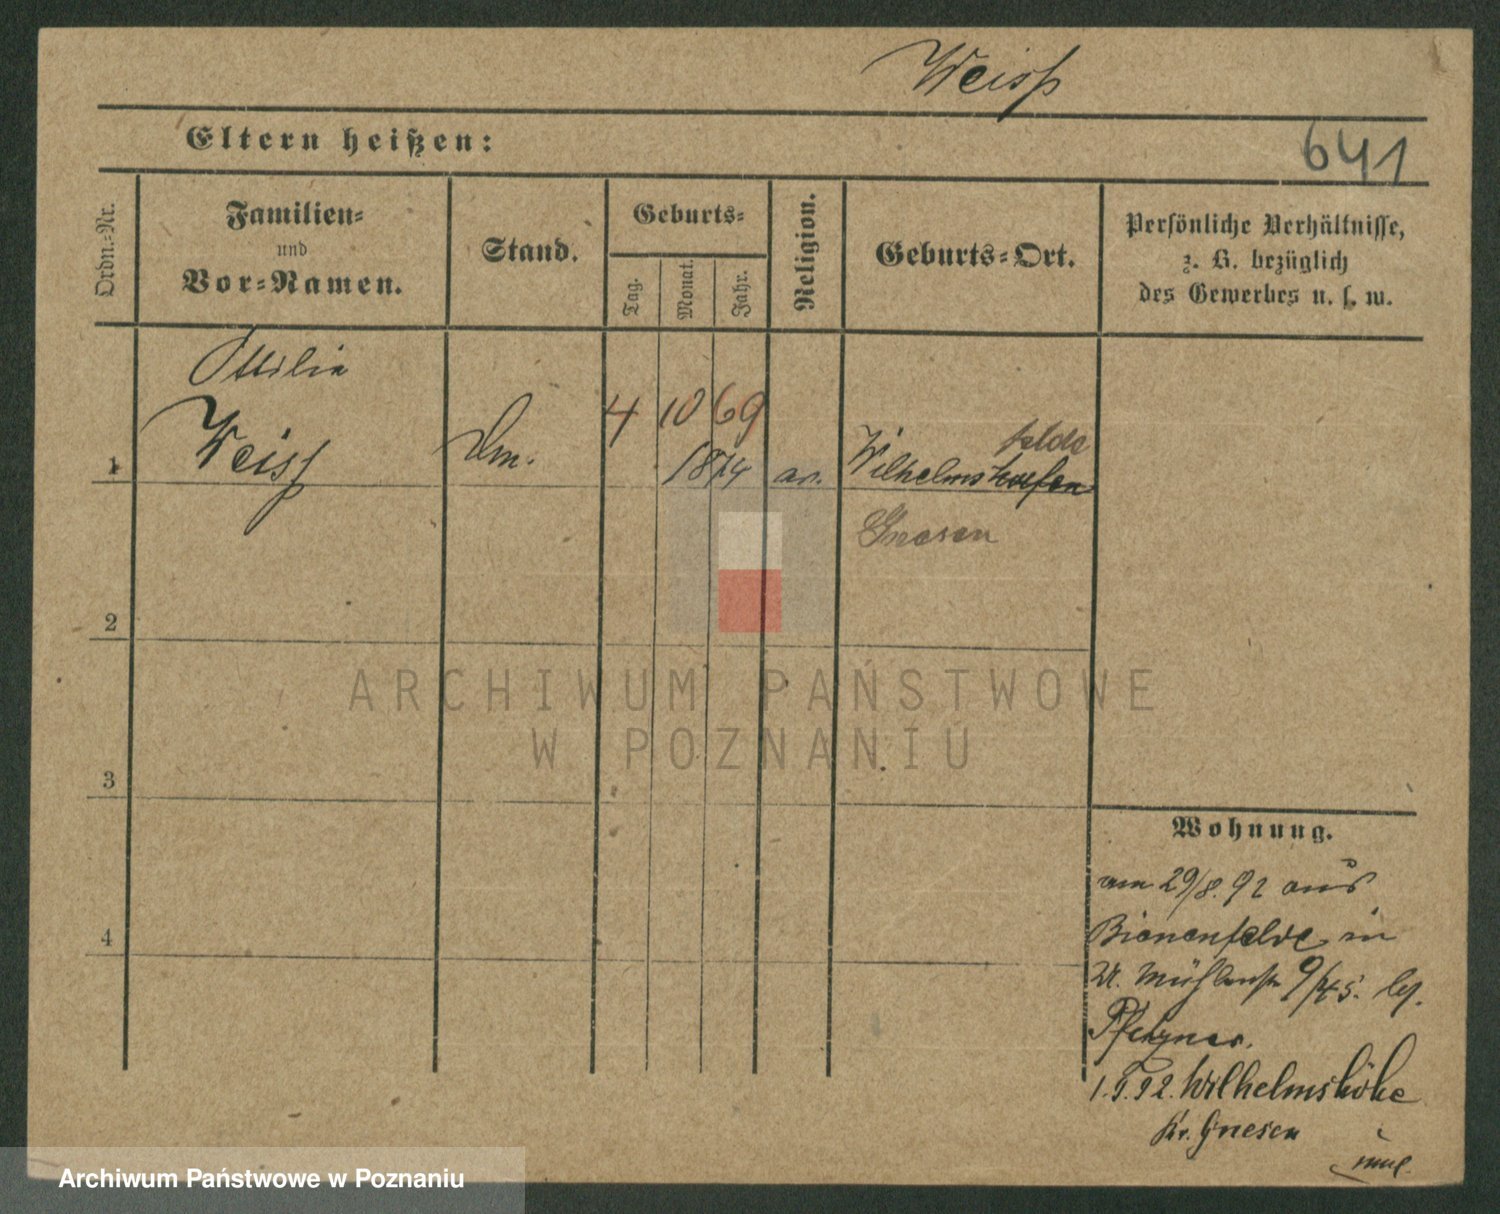 Weiss
Eltern heißen:
641
Ordn.-Nr.
Familien-
und
Vor-Namen.
Stand.
Geburts-
Tag.
Monat.
Jahr.
Religion.
Geburts-Ort.
Persönliche Verhältnisse,
z. B. bezüglich
des Gewerbes u. s. w.
Ottilie
4 10 69
felde
1 Weiss
1874 ev. Wilhelmshafen
Gnesen
2
ARCHIWUM PAŃSTWOWE
W POZNANIU
3
Wohnung.
am 29/8. 92 aus
4
Bienenfelde in
9/45.
1.9.92. Wilhelmshöhe
Kr. Gnesen
Archiwum Państwowe w Poznaniu